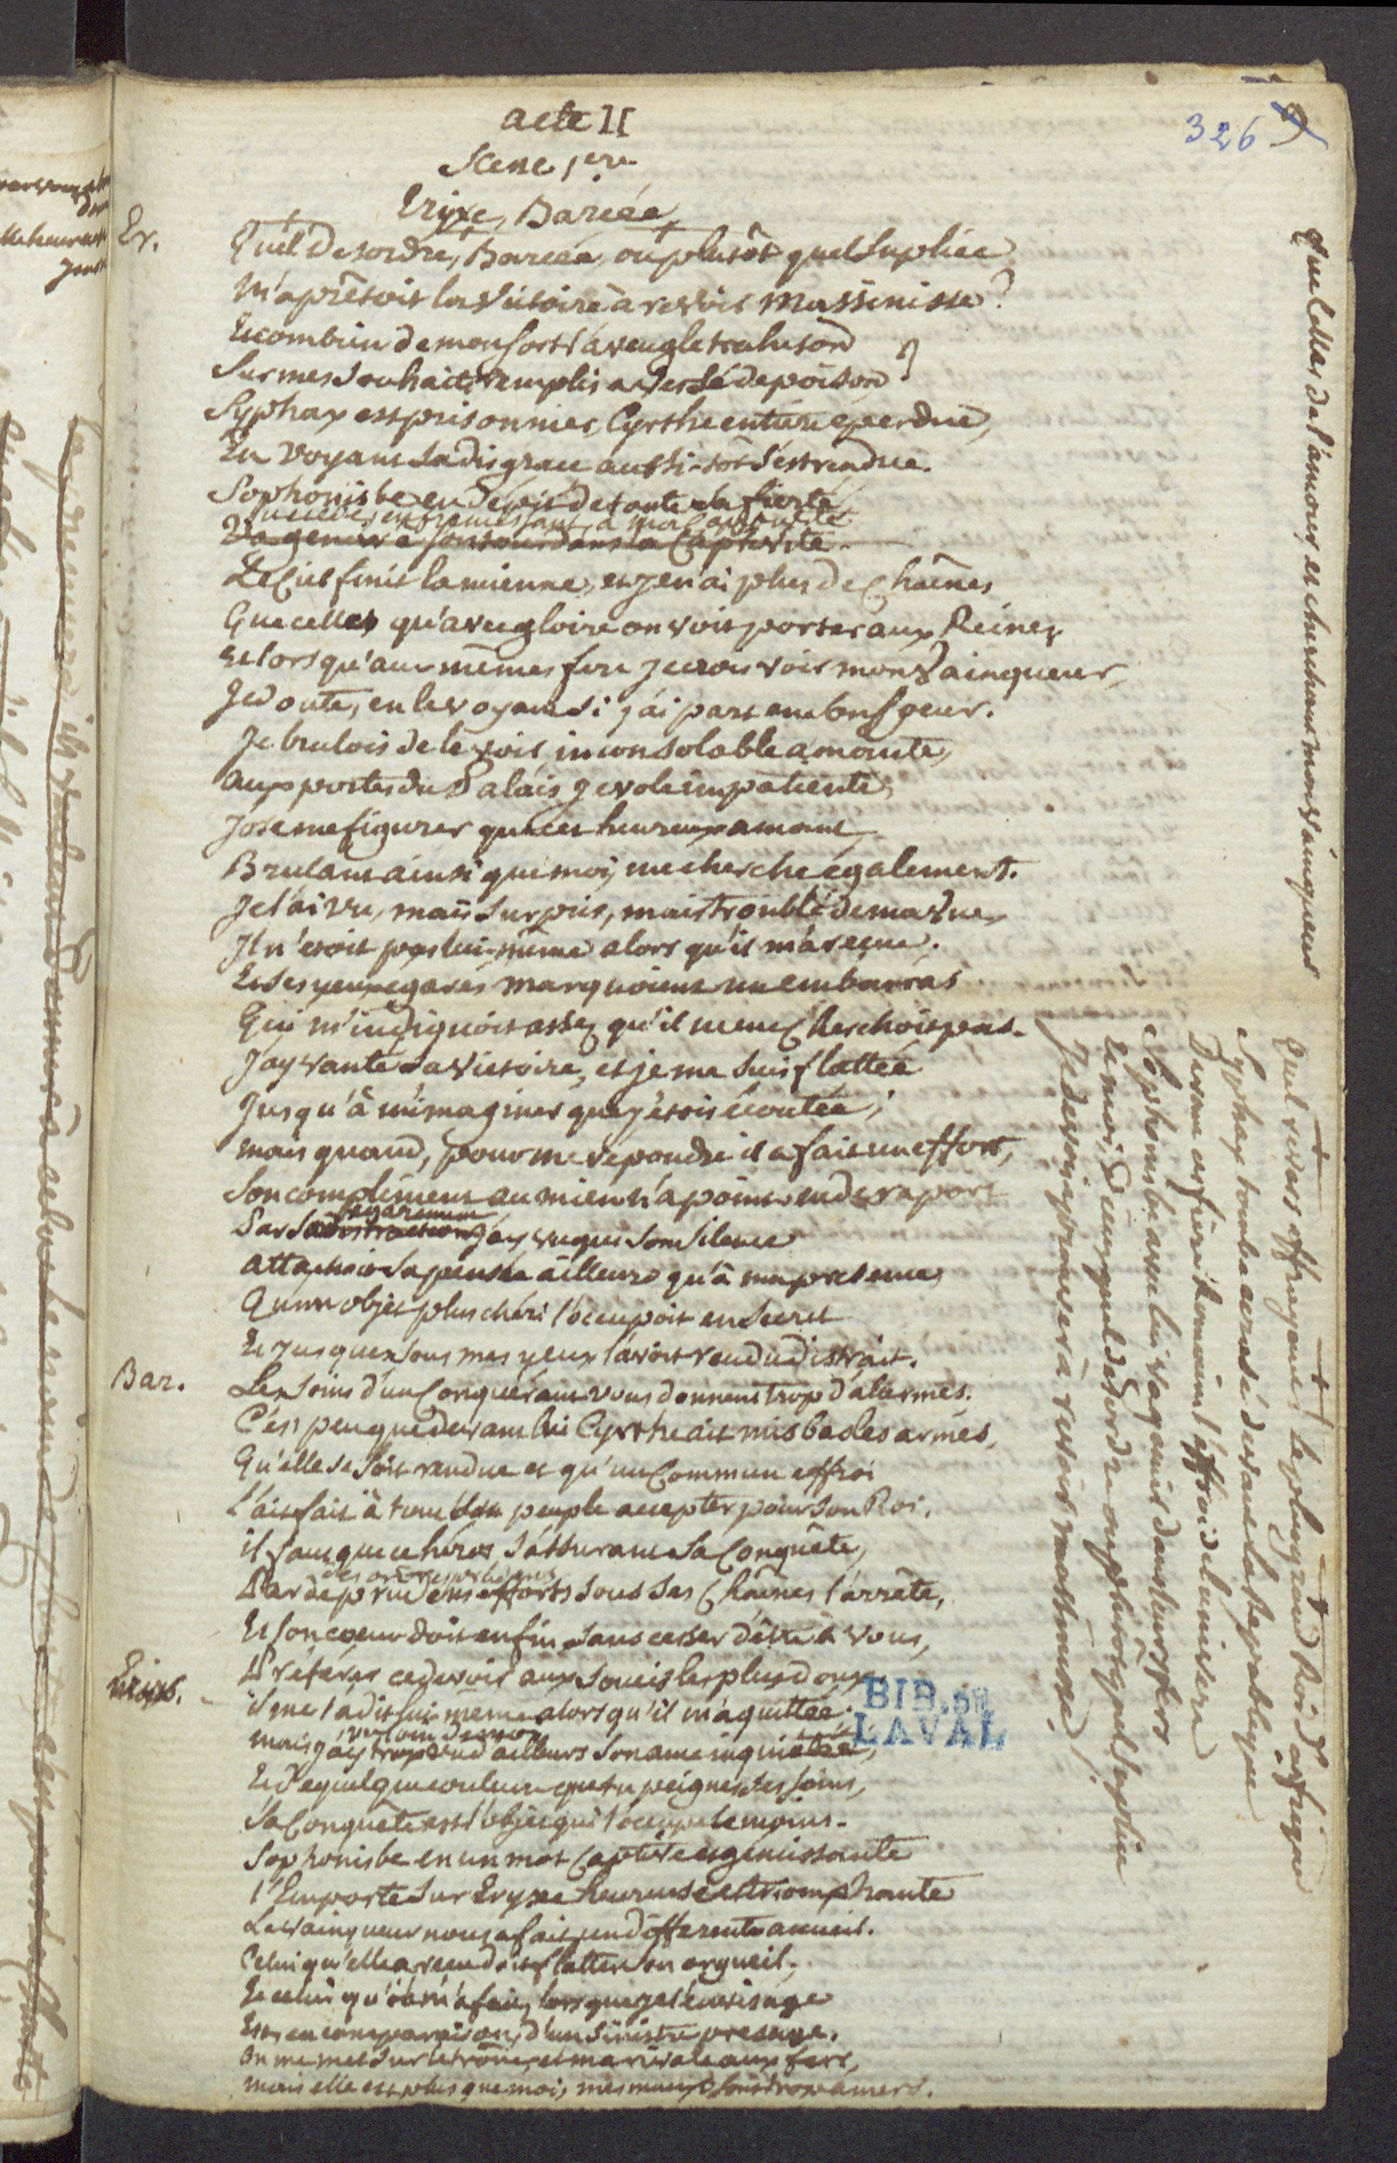 326
9
acte II
Scene 1ere
Erÿxe, Barcée
Er.
Quel desordre, Barcée, ou plutôt quel suplice
M'aprêtoit la victoire à revoir Massinisse?
Et combien de mon sort l'aveugle trahison
Sur mes souhaits remplis a versé de poison?
Syphax est prisonnier, Cyrthe entiere eperdue,
En voyant sa disgrace aussi-tôt s'est rendue.
Sophonisbe en dépit de toute sa fierté
succede, en fremissant, a ma captivité
Va gemir a son tour dans la Captivité.
Le Ciel finit la mienne, et je n'ai plus de Chaînes
Que celles qu'avec gloire on voit porter aux Reines
et lors qu'aux mêmes fers je crois voir mon Vainqueur,
Je doute, en le voyant si j'ai part en son coeur.
Je brulois de le voir, inconsolable amante,
aux portes du Palais je vole impatiente,
J'ose me figurer que cet heureux amant
Brulant ainsi que moi, me cherche également.
Je l'ai vu, mais surpris, mais troublé de ma Vue,
Il n'etoit pas lui-même alors qu'il m'a reçue.
Et ses yeux egarés marquoient un embarras
Qui m'indiquoit assez qu'il ne me Cherchoit pas.
J'ay vanté sa victoire, et je me suis flattée
Jusqu'à m'imaginer que j'étois écoutée;
mais quand, pour me repondre il a fait un effort,
Son compliment au mien n'a point eu de raport
egarement
Par sa distraction j'ay vu que son silence
attachoit sa pensée ailleurs qu'à ma presence
Qu'un objet plus chéri l'occupoit en secret
Et jusques sous mes yeux l'avoit rendu distrait.
Bar.
Les soins d'un Conquérant vous donnent trop d'alarmes.
C'est peu que devant lui Cyrthe ait mis bas les armes,
Qu'elle se soit rendue et qu'un Commun effroi
l'ait fait à tout son peuple accepter pour son Roi.
il faut que ce héros s'assurant sa Conquête,
des ordres
Par de prudens efforts sous ses Chaînes l'arrête,
Et son coeur doit enfin sans cesser d'être à vous,
Préférer ce devoir aux soucis les plus doux.
Erixe.
il me l'a dit lui-même alors qu'il m'a quittée.
vu loin de moi
mais j'ay trop vu d'ailleurs son ame inquiétée,
Et de quelque couleur que tu peignes ses soins,
Sa Conquête est l'objet qui l'occupe le moins.
Sophonisbe en un mot Captive et gemissante
l'Emporte sur Eryxe heureuse et triomphante
Le vainqueur nous a fait un différent accueil.
Celui qu'elle a reçu doit flatter son orgueil,
Et celui qu'il m'a fait, lors que je l'envisage
Est, en comparaison, d'un sinistre presage.
On me met sur le trône, et ma rivale aux fers,
mais elle est plus que moi, mes maux sont trop amers.
BIB. DE
LAVAL
Que celles de l'amour, et cherchant mon Vainqueur
Quel revers effrayant! le plus grand Roi d'affrique
Syphax tombe accablé devant la republique
Devant ces fiers Romains l'effroi de l'univers
Sophonisbe avec lui va gemir dans leurs fers
Et moi, Dieux, quel desordre ou plutôt quel suplice
Je devois eprouver à revoir Massinisse!